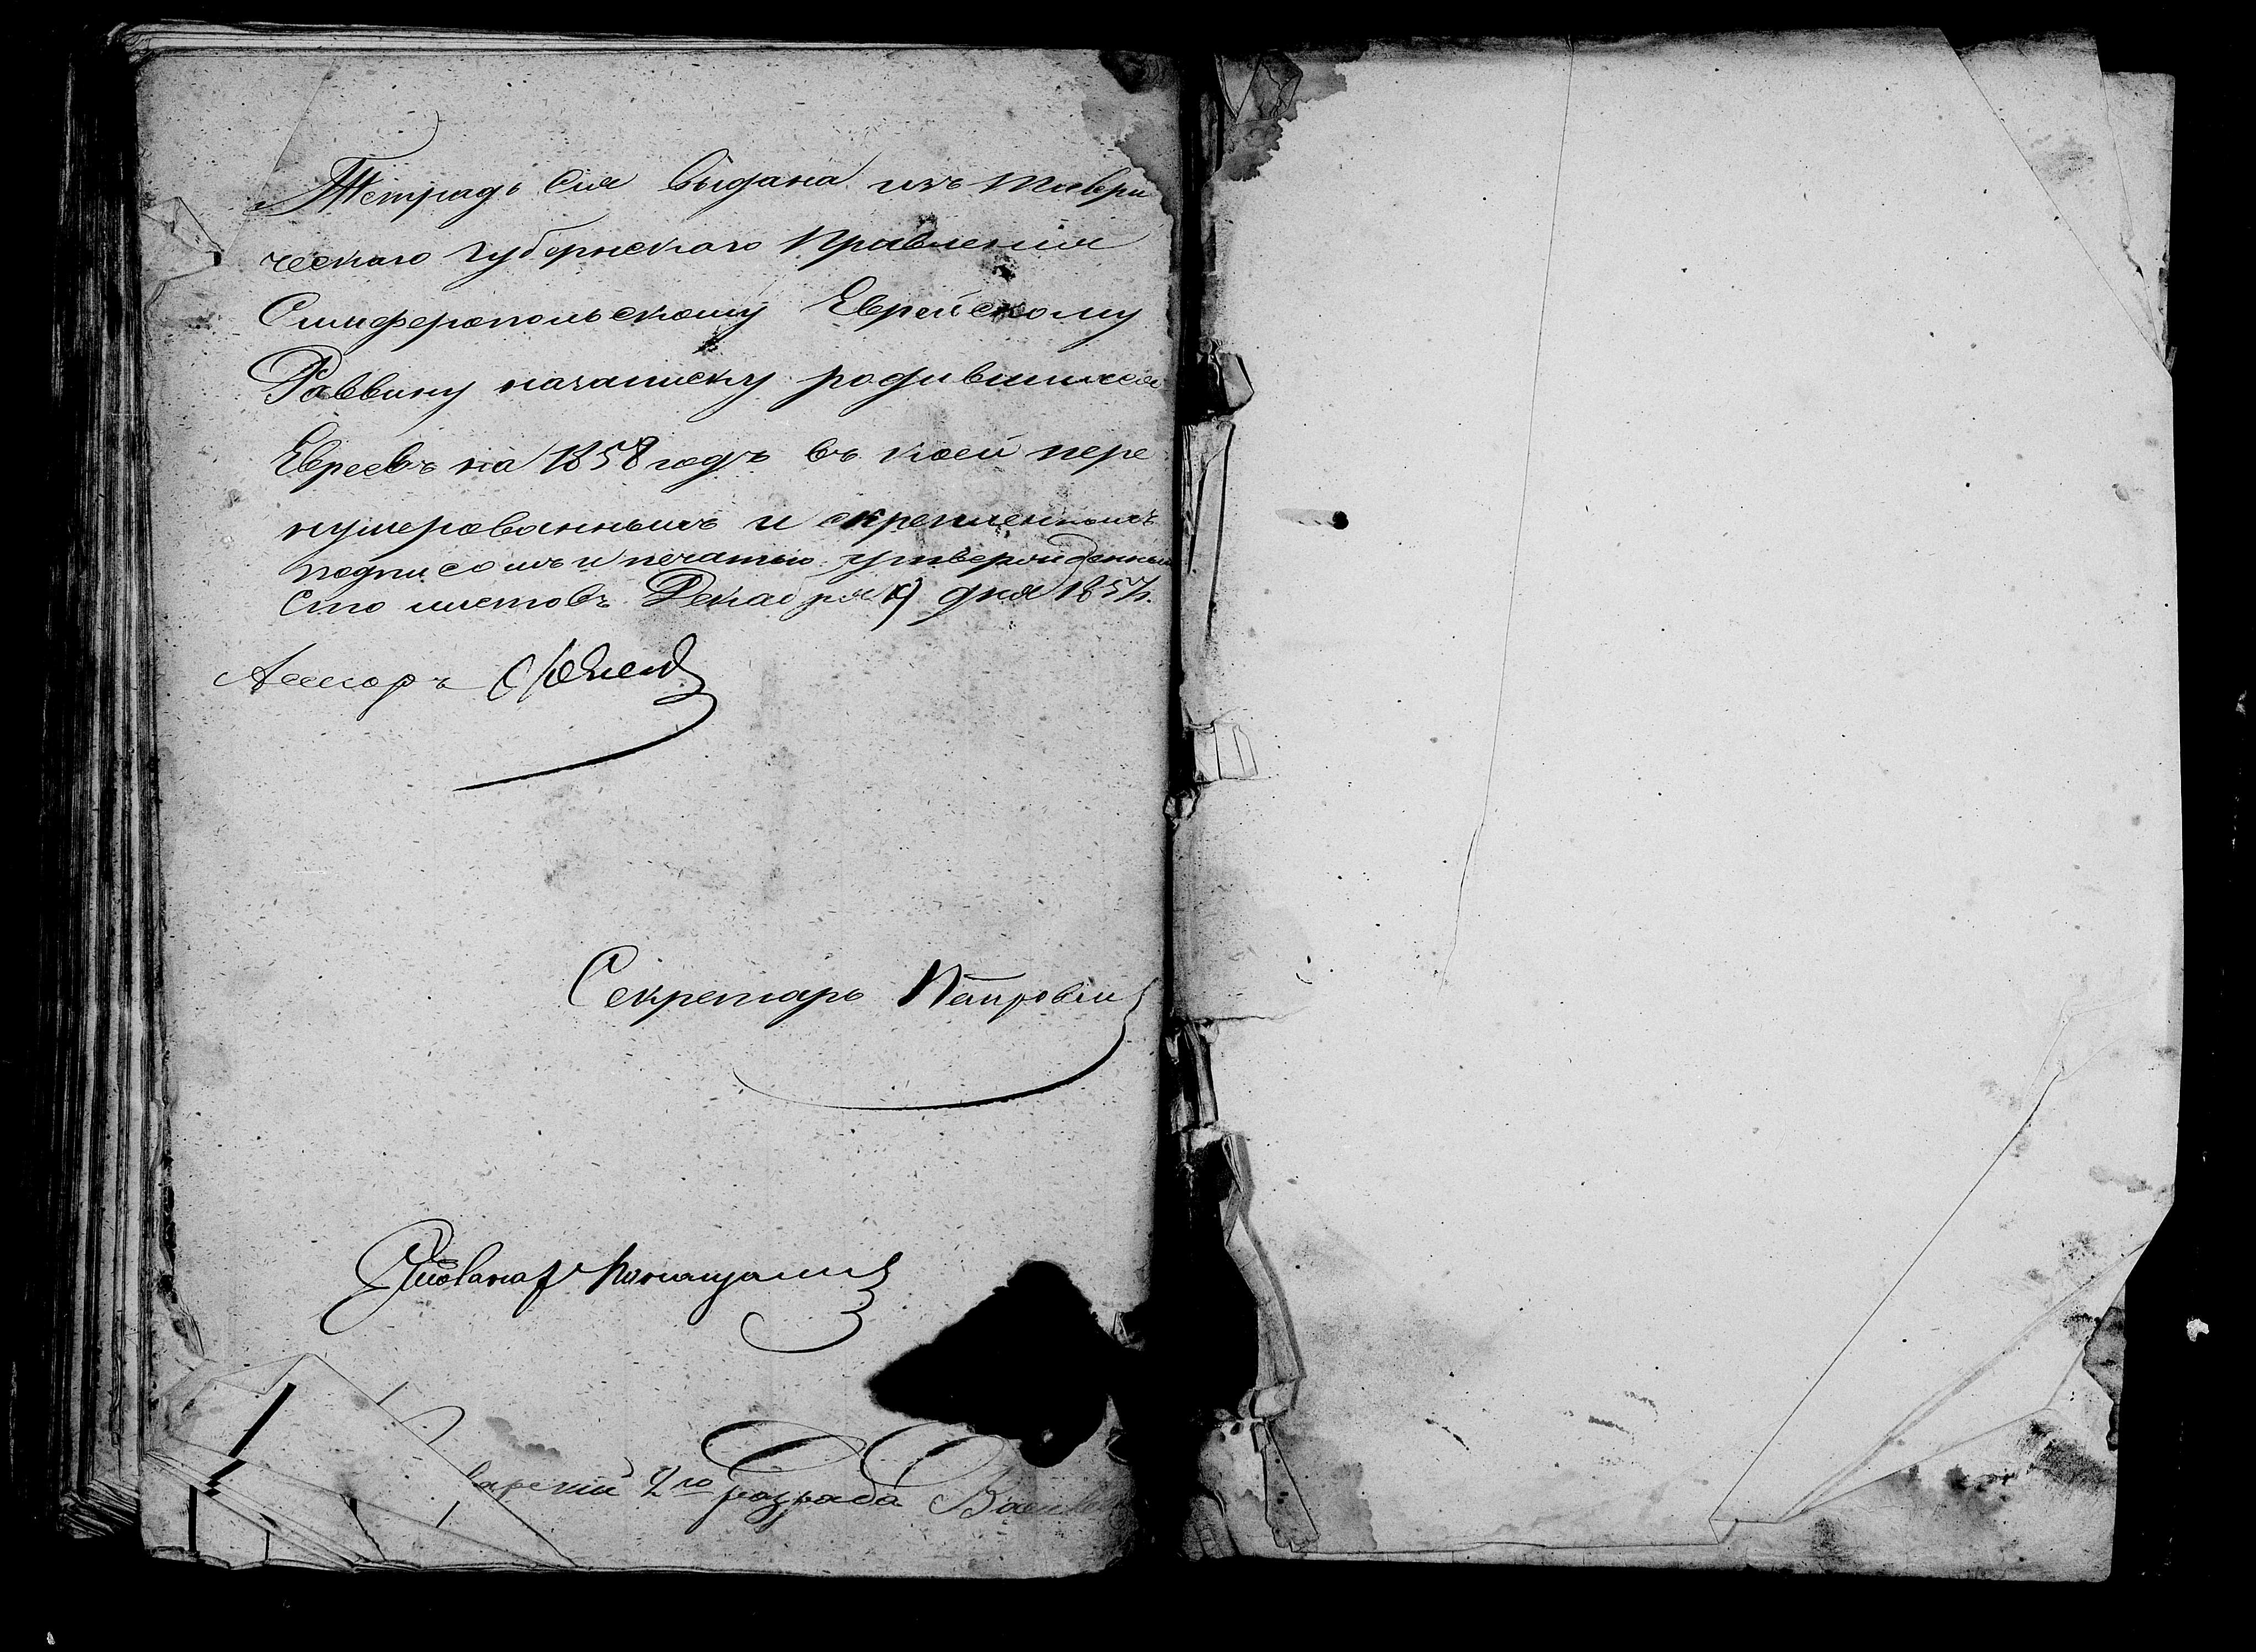 Тетрадь сія выдана изъ Таври
ческаго Губернскаго Правленія
Симферопольскому Еврейскому
Раввину на записку родившихся
Евреевъ на 1858 годъ въ коей пере
нумерованныхъ и скрепленныхъ
подписомъ и печатью утвержденных
сто листовъ Декабря 19 дня 1857 г.
Ассесоръ
Секретарь Петровскій
2го разряда